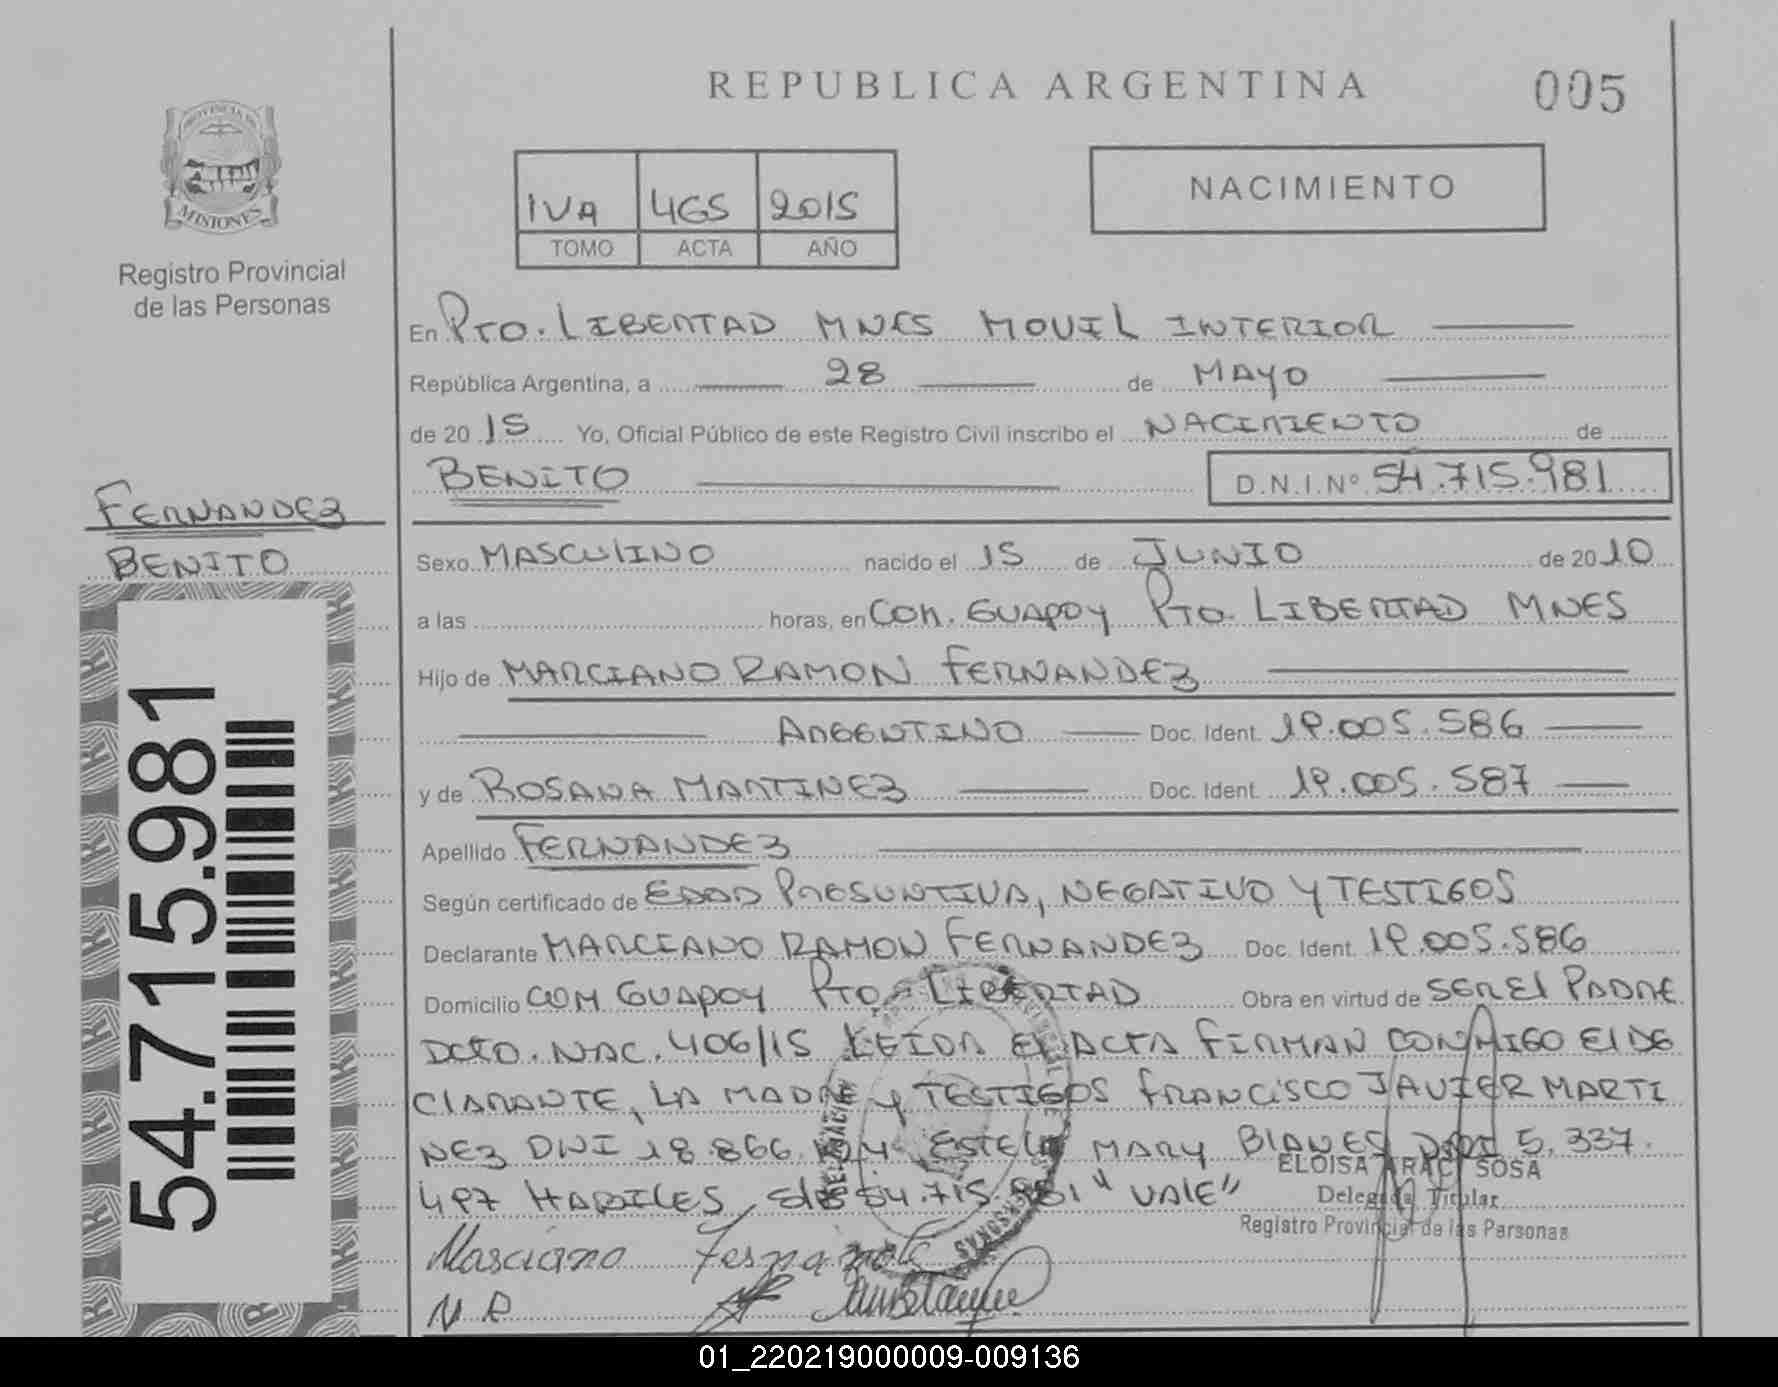 REPUBLICA ARGENTINA
005
PROVINCIA DE
MISIONES
Registro Provincial
de las Personas
IVA 465 2015
TOMO ACTA AÑO
NACIMIENTO
En PTO. LIBERTAD MNES MOVIL INTERIOR
República Argentina, a 28 de MAYO
de 20 15 Yo, Oficial Público de este Registro Civil inscribo el NACIMIENTO de
BENITO D.N.I.Nº 54.715.981
FERNANDEZ
BENITO
54.715.981
Sexo MASCULINO nacido el 15 de JUNIO de 20 10
a las horas, en COM. GUAPOY PTO. LIBERTAD MNES
Hijo de MARCIANO RAMON FERNANDEZ
ARGENTINO Doc. Ident. 19.005.586
y de ROSANA MARTINEZ Doc. Ident. 19.005.587
Apellido FERNANDEZ
Según certificado de EDAD PRESUNTIVA, NEGATIVO Y TESTIGOS
Declarante MARCIANO RAMON FERNANDEZ Doc. Ident. 19.005.586
Domicilio COM GUAPOY PTO. LIBERTAD Obra en virtud de SER EL PADRE
DCTO. NAC. 406/15 LEIDA EL ACTA FIRMAN CONMIGO EL DE
CLARANTE, LA MADRE Y TESTIGOS FRANCISCO JAVIER MARTI
NEZ DNI 18.866. ESTELA MARY BLANES DNI 5.337.
497 HABILES 54.715.981 "VALE"
ELOISA ARACI SOSA
Delegada Titular
Registro Provincial de las Personas
Marciano Fernandez
N R
01_220219000009-009136